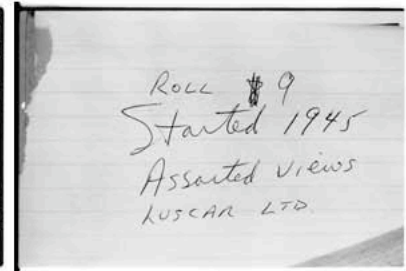 ROLL # 9
Started 1945
Assorted views
LUSCAR LTD.